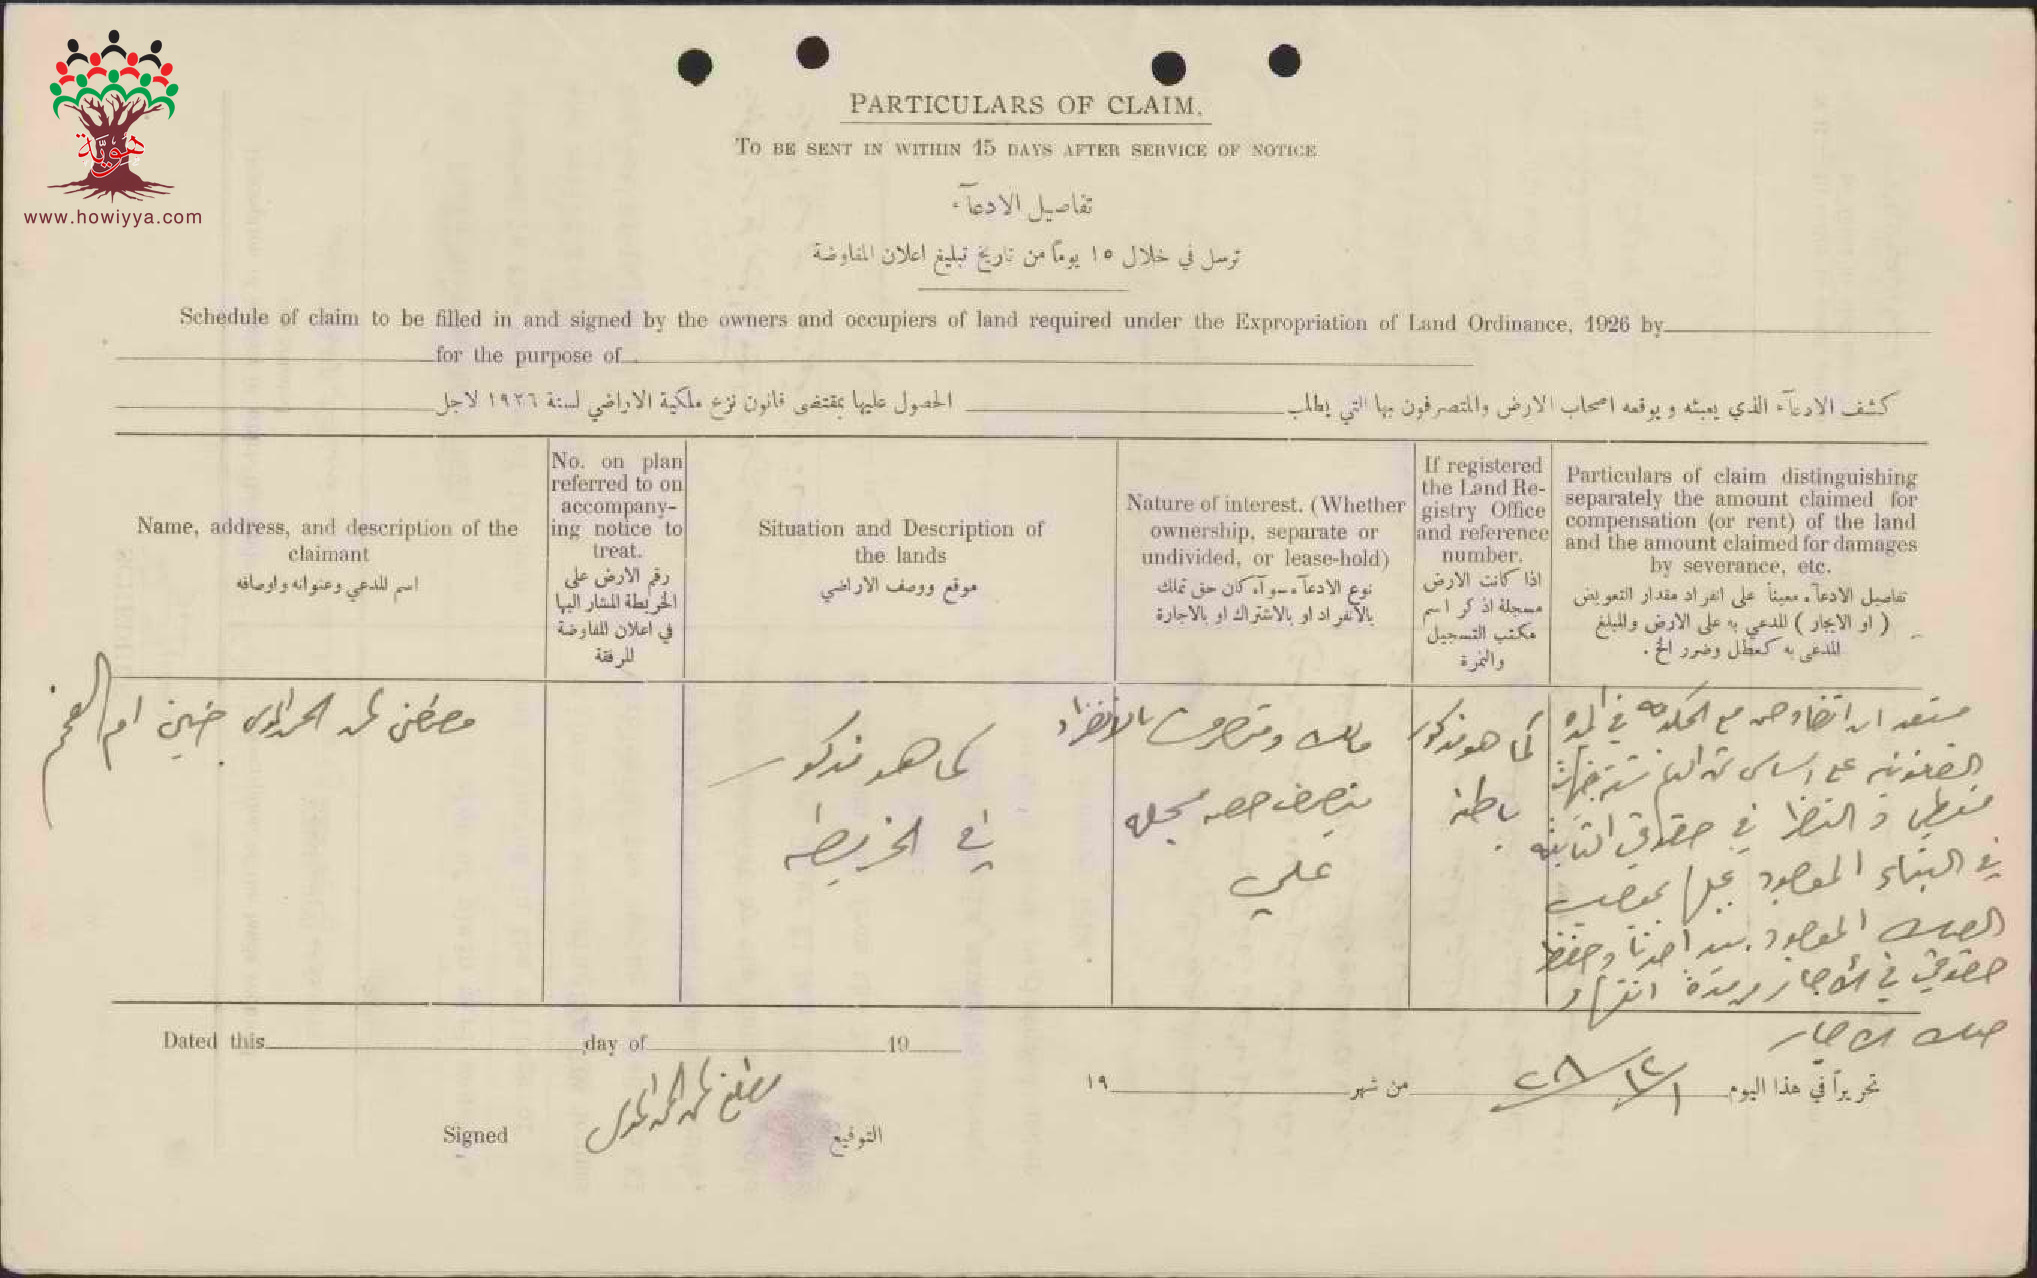 هويّة
www.howiyya.com
PARTICULARS OF CLAIM.
TO BE SENT IN WITHIN 15 DAYS AFTER SERVICE OF NOTICE
تفاصيل الادعآء
ترسل في خلال ١٥ يوماً من تاريخ تبليغ اعلان المفاوضة
Schedule of claim to be filled in and signed by the owners and occupiers of land required under the Expropriation of Land Ordinance, 1926 by
for the purpose of
كشف الادعآء الذي يعبئه و يوقعه اصحاب الارض والمتصرفون بها التي يطلب
الحصول عليها بمقتضى قانون نزع ملكية الاراضي لسنة ١٩٢٦ لاجل
Name, address, and description of the
claimant
اسم المدعي وعنوانه واوصافه
No. on plan
referred to on
accompany-
ing notice to
treat.
رقم الارض على
الخريطة المشار اليها
في اعلان المفاوضة
المرفقة
Situation and Description of
the lands
موقع ووصف الاراضي
Nature of interest. (Whether
ownership, separate or
undivided, or lease-hold)
نوع الادعآء سوآء كان حق تملك
بالانفراد او بالاشتراك او بالاجارة
If registered
the Land Re-
gistry Office
and reference
number.
اذا كانت الارض
مسجلة اذكر اسم
مكتب التسجيل
والنمرة
Particulars of claim distinguishing
separately the amount claimed for
compensation (or rent) of the land
and the amount claimed for damages
by severance, etc.
تفاصيل الادعآء معيناً على انفراد مقدار التعويض
( او الايجار ) المدعي به على الارض والمبلغ
المدعى به كعطل وضرر الخ .
مصطفى جنين ام الفحم
كما هو مذكور
في الخريطه
مالك ومتصرف بالانفراد
حصه مسجله
علي
كما هو مذكور
باطنه
مستعد ان اتفاوض مع الحكومه في المده
القانونيه على اساس
في حقوقي الثابته
في البناء المعقود عليها بموجب
الصك المعقود وحفظ
حقوقي في الايجار
صك الايجار
Dated this day of 19
تحريراً في هذا اليوم ٢٨/١٢/ من شهر ١٩
Signed مصطفى التوقيع